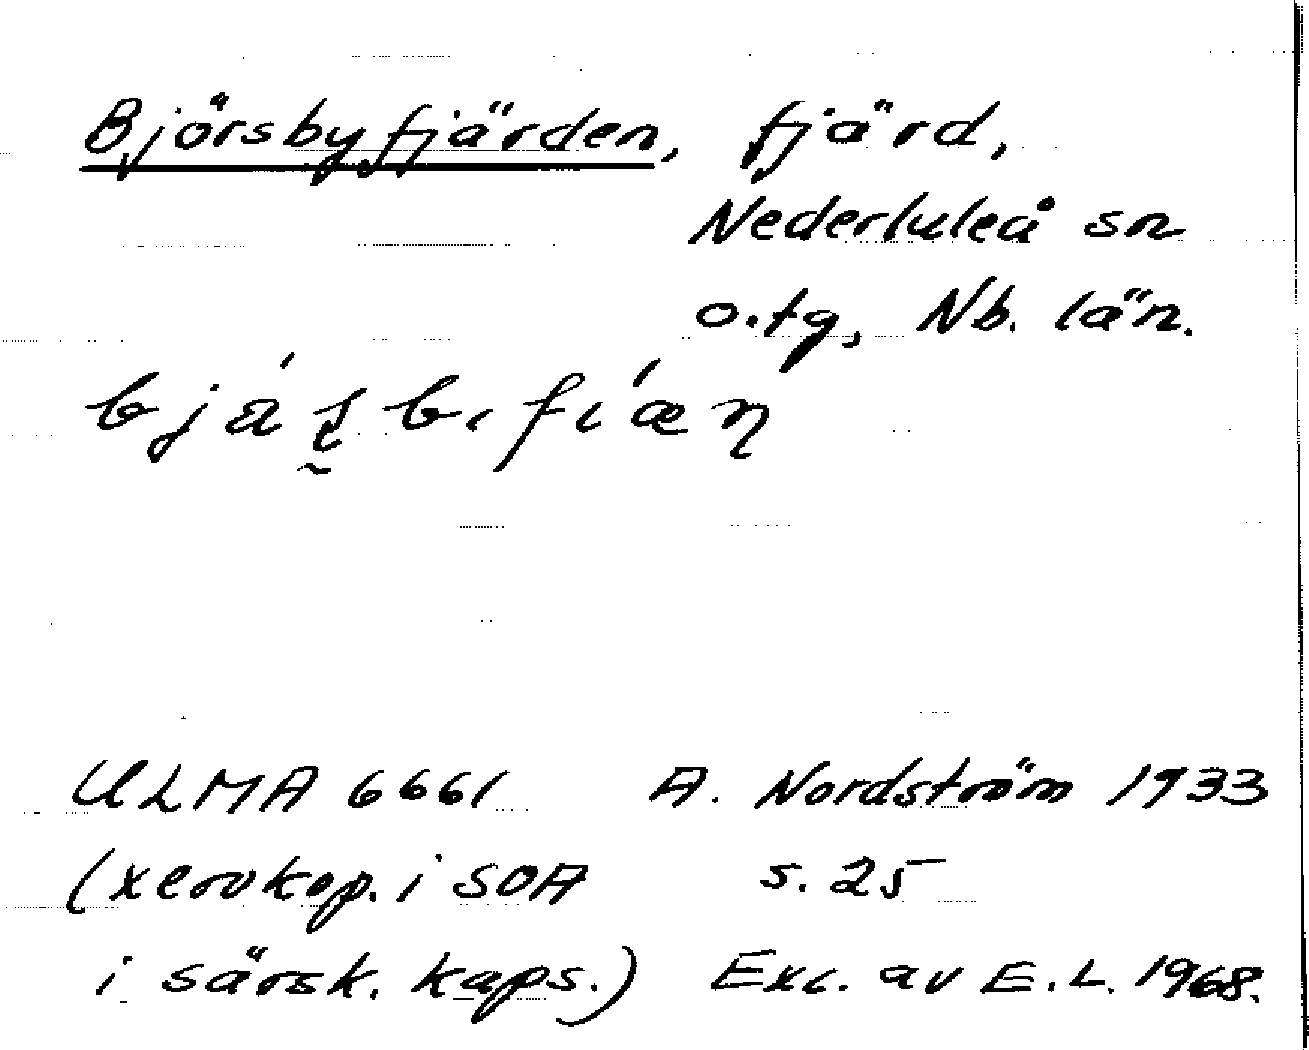 Björsbyfjärden, fjärd,
Nederluleå sn
o.tg, Nb. län.
ULMA 6661 A. Nordström 1933
(xerokop. i SOA s. 25
i särsk. kaps.) Exc. av E.L. 1968.